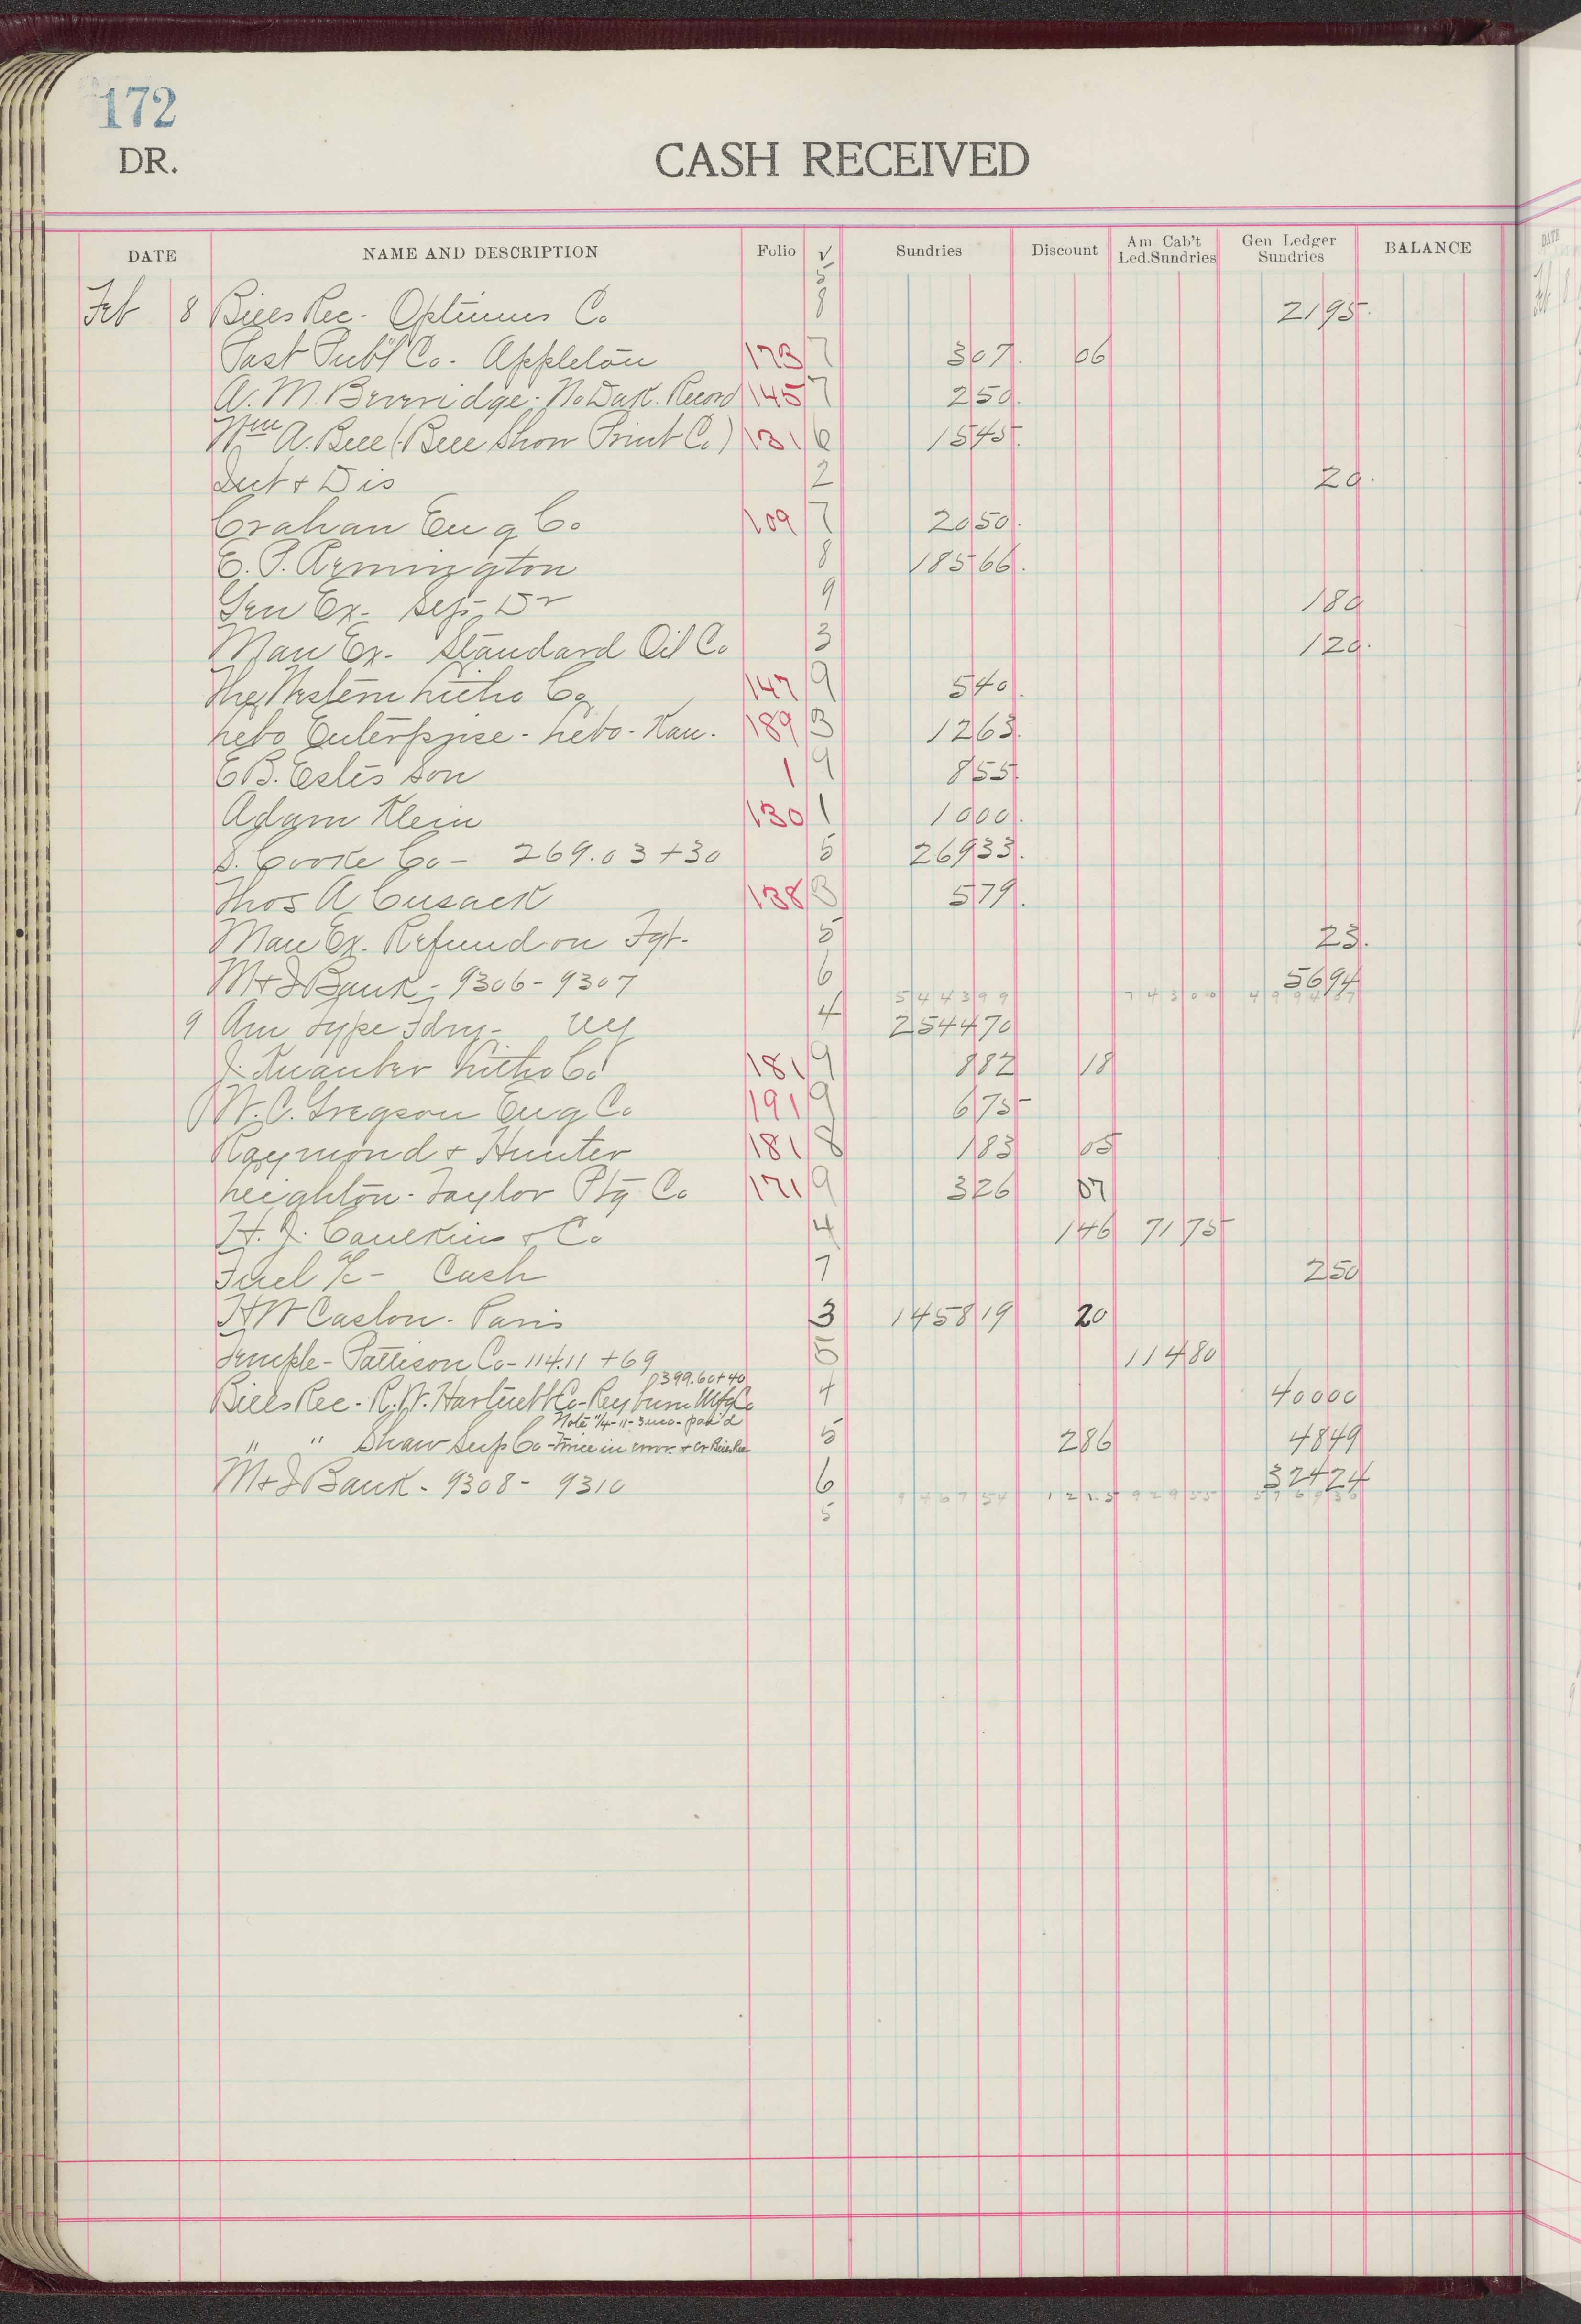 172
DR.
CASH RECEIVED
DATE NAME AND DESCRIPTION Folio √ Sundries Discount Am Cab't Led.Sundries Gen Ledger Sundries BALANCE
5
Feb 8 Bills Rec - Optimus Co 8 2195.
Post Publ Co - Appleton 173 7 307. 06
A. M. Beveridge - No Dak. Record 145 7 250.
Wm A. Bell (Bell Show Print Co) 131 6 1545.
Int + Dis 2 20.
Crahan Eng Co 109 7 2050.
E. P. Armington 8 18566.
Gen Ex - Dr 9 180
Man Ex - Standard Oil Co 3 120.
The Western Litho Co 147 9 540.
Lebo Enterprise - Lebo - Kan. 189 3 1263.
E B. Estes Son 1 9 855.
Adam Klein 130 1 1000.
S. Cooke Co - 269.03 + 30 5 26933.
Thos A Cusack 138 3 579.
Man Ex. Refund on Fgt - 5 23.
M + I Bank - 9306 - 9307 6 5694
544399 74300 4994 07
9 Am Type Fdry - 4 254470
J. Knauber Litho Co 181 9 882 18
W. C. Gregson Eng Co 191 9 675
Raymond + Hunter 181 8 183 05
Leighton - Taylor Ptg Co 171 9 326 07
H. J. Caulkins + Co 4 146 7175
Fuel a/c - Cash 7 250
H W Caslon - Paris 3 145819 20
Temple - Pattison Co - 114.11 + 69 5 11480
399.60 + 40
Bills Rec - R. W. Hartnett Co - Reyburn Mfg Co 4 40000
Note 11/4 - 11 - 3 mo - paid
" " Shaw Sup Co - 5 286 4849
M + I Bank - 9308 - 9310 6 32424
946754 1215 92955 576930
5